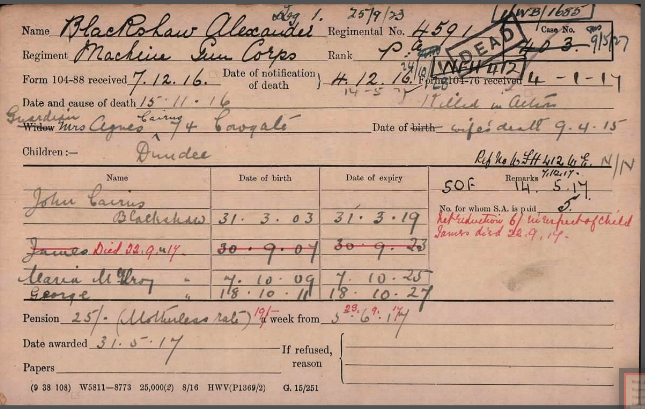 25/9/23 WB/1655
Name Blackshaw Alexander. Regimental No. 4591 Case No.
DEAD 403 9/5/27
Regiment Machine Gun Corps Rank Pte
Form 104-88 received 7.12.16. Date of notification of death } 4.12.16. Form 104-76 received 4-1-17
Date and cause of death 15-11-16 Killed in Action
Guardian Cairns
Widow Mrs Agnes 74 Cowgate Date of birth wife's death 9.4.15
Children:— Dundee
N/N
7.12.17.
Name Date of birth Date of expiry Remarks
50F 14.5.17
No. for whom S.A. is paid 5.
John Cairns
Blackshaw 31.3.03 31.3.19
Net reduction 6/ in respect of child
James died 22.9.17.
James Died 22.9.17. 30.9.07 30.9.23
Maria McIlroy " 7.10.09 7.10.25
George " 18.10.11 18.10.27
Pension 25/- (Motherless rate) 19/- a week from
Date awarded 31.5.17 If refused, reason
Papers
(9 38 108) W5811—8773 25,000(2) 8/16 HWV(P1369/2) G. 15/251